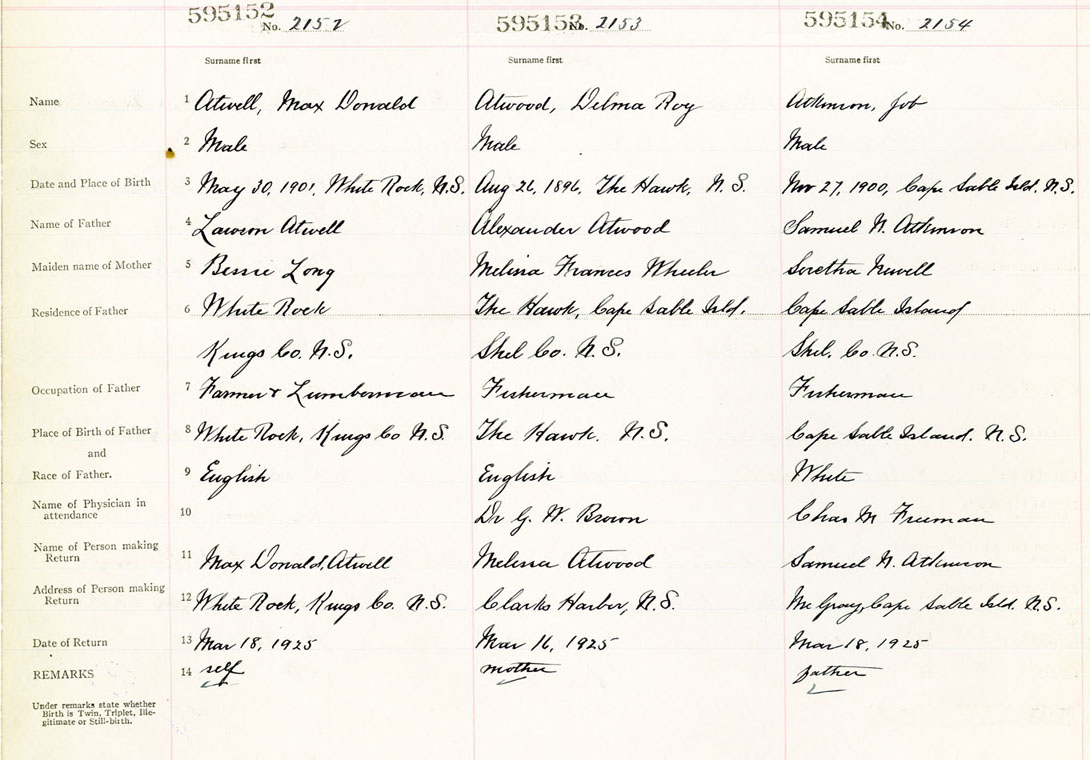 595152 No. 2152 595153 No. 2153 595154 No. 2154
Surname first Surname first Surname first
Name 1 Atwell, Max Donald Atwood, Delma Roy Atkinson, Job
Sex 2 Male Male Male
Date and Place of Birth 3 May 30, 1901, White Rock, N.S. Aug 26, 1896, The Hawk, N.S. Nov 27, 1900, Cape Sable Isld. N.S.
Name of Father 4 Lawson Atwell Alexander Atwood Samuel N. Atkinson
Maiden name of Mother 5 Bessie Long Melissa Frances Wheeler Soretha Newell
Residence of Father 6 White Rock The Hawk, Cape Sable Isld. Cape Sable Island
Kings Co. N.S. Shel Co. N.S. Shel. Co. N.S.
Occupation of Father 7 Farmer & Lumberman Fisherman Fisherman
Place of Birth of Father 8 White Rock, Kings Co N.S. The Hawk. N.S. Cape Sable Island. N.S.
and
Race of Father. 9 English English White
Name of Physician in
attendance 10 Dr G. W. Brown Chas M Freeman
Name of Person making
Return 11 Max Donald Atwell Melissa Atwood Samuel N. Atkinson
Address of Person making
Return 12 White Rock, Kings Co. N.S. Clarks Harbor, N.S. Mc Gray, Cape Sable Isld. N.S.
Date of Return 13 Mar 18, 1925 Mar 16, 1925 Mar 18, 1925
REMARKS 14 self mother father
Under remarks state whether
Birth is Twin, Triplet, Ille-
gitimate or Still-birth.